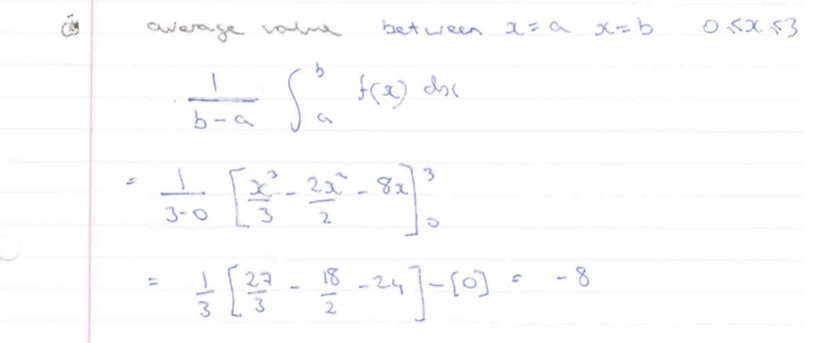 (ii) average value between x=a x=b 0≤x≤3
1/(b-a) ∫_a^b f(x) dx
= 1/(3-0) [x³/3 - 2x²/2 - 8x]_0^3
= 1/3 [27/3 - 18/2 - 24] - [0] = -8